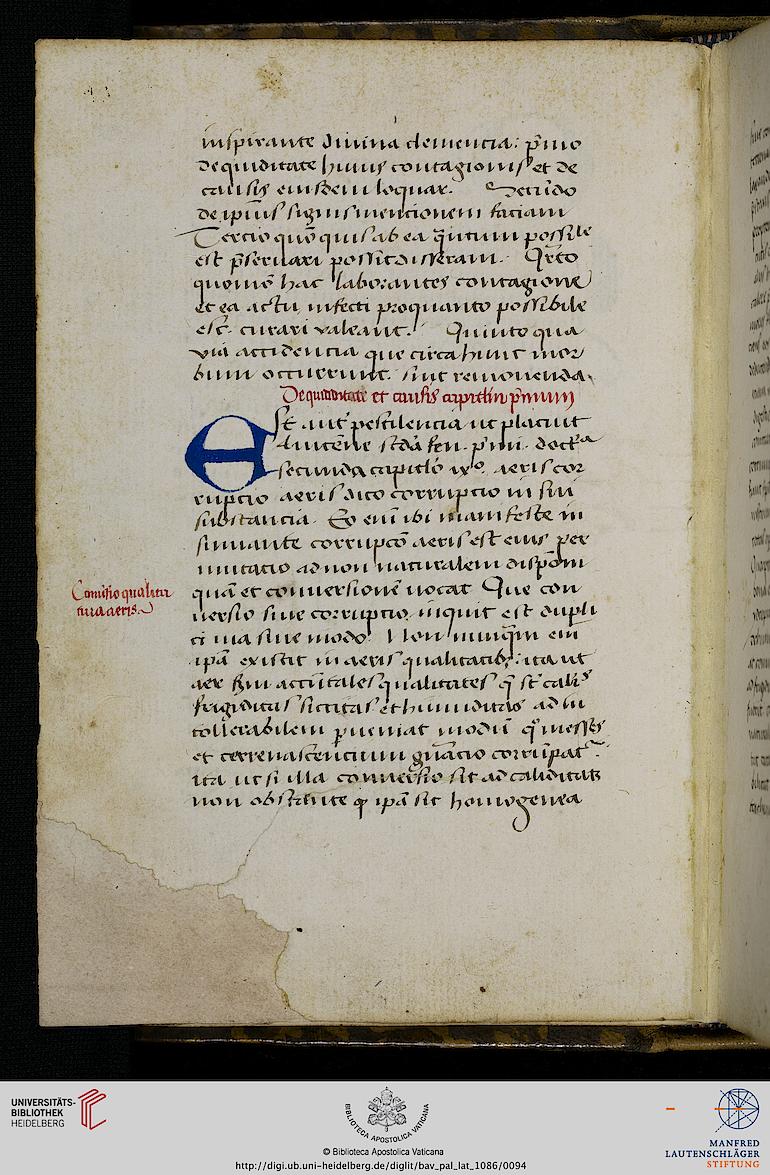 inspirante diuina clemencia: p̄mo
de quiditate huius contagionis et de
causis eiusdem loquar. Secūdo
de ipius signis mencionem faciam
Tercio quō quis ab ea q̄ntum possi⁠le
est p̄seruari possit disseram. Q̄rto
quomō hac laborantes contagione
et ea actu infecti pro quanto possibile
est. curari valeant. Quinto qua
via accidencia que circa hunc mor
bum occurrunt. sint remouenda.
De quiditate et causis capitlm p̄mum
Est aut pestilencia ut placuit
Auicēne scd̄a fen. p̄mi. doct͛ᵃ
secunda capitlo ixº. aeris cor
rupcio aeris dico corrupcio in sui
substancia. Eo em̄ ibi manifeste in
sinuante corrupcō aeris est eius per
mutacio ad non naturalem dispōm
quā et conuersionē uocat Que con
Comixtio qualita
tiua aeris
uersio siue corrupcio, inquit est dupli
ci uia siue modo. Non nunq̄m em̄
ipā existit in aeris qualitatibꝫ: ita ut
aer scdm accn̄tales qualitates q̄ st̄ calis
frigiditas siccitas et humiditas ad in
tollerabilem p̱ueniat modū qº messes
et terrenascencium gn̄acio corrūpat͛.
ita ut si illa conuersio sit ad caliditatē
non obstante ꝙ ipā sit homogenea
UNIVERSITÄTS-
BIBLIOTHEK
HEIDELBERG
BIBLIOTECA APOSTOLICA VATICANA
© Biblioteca Apostolica Vaticana
http://digi.ub.uni-heidelberg.de/diglit/bav_pal_lat_1086/0094
MANFRED
LAUTENSCHLÄGER
STIFTUNG